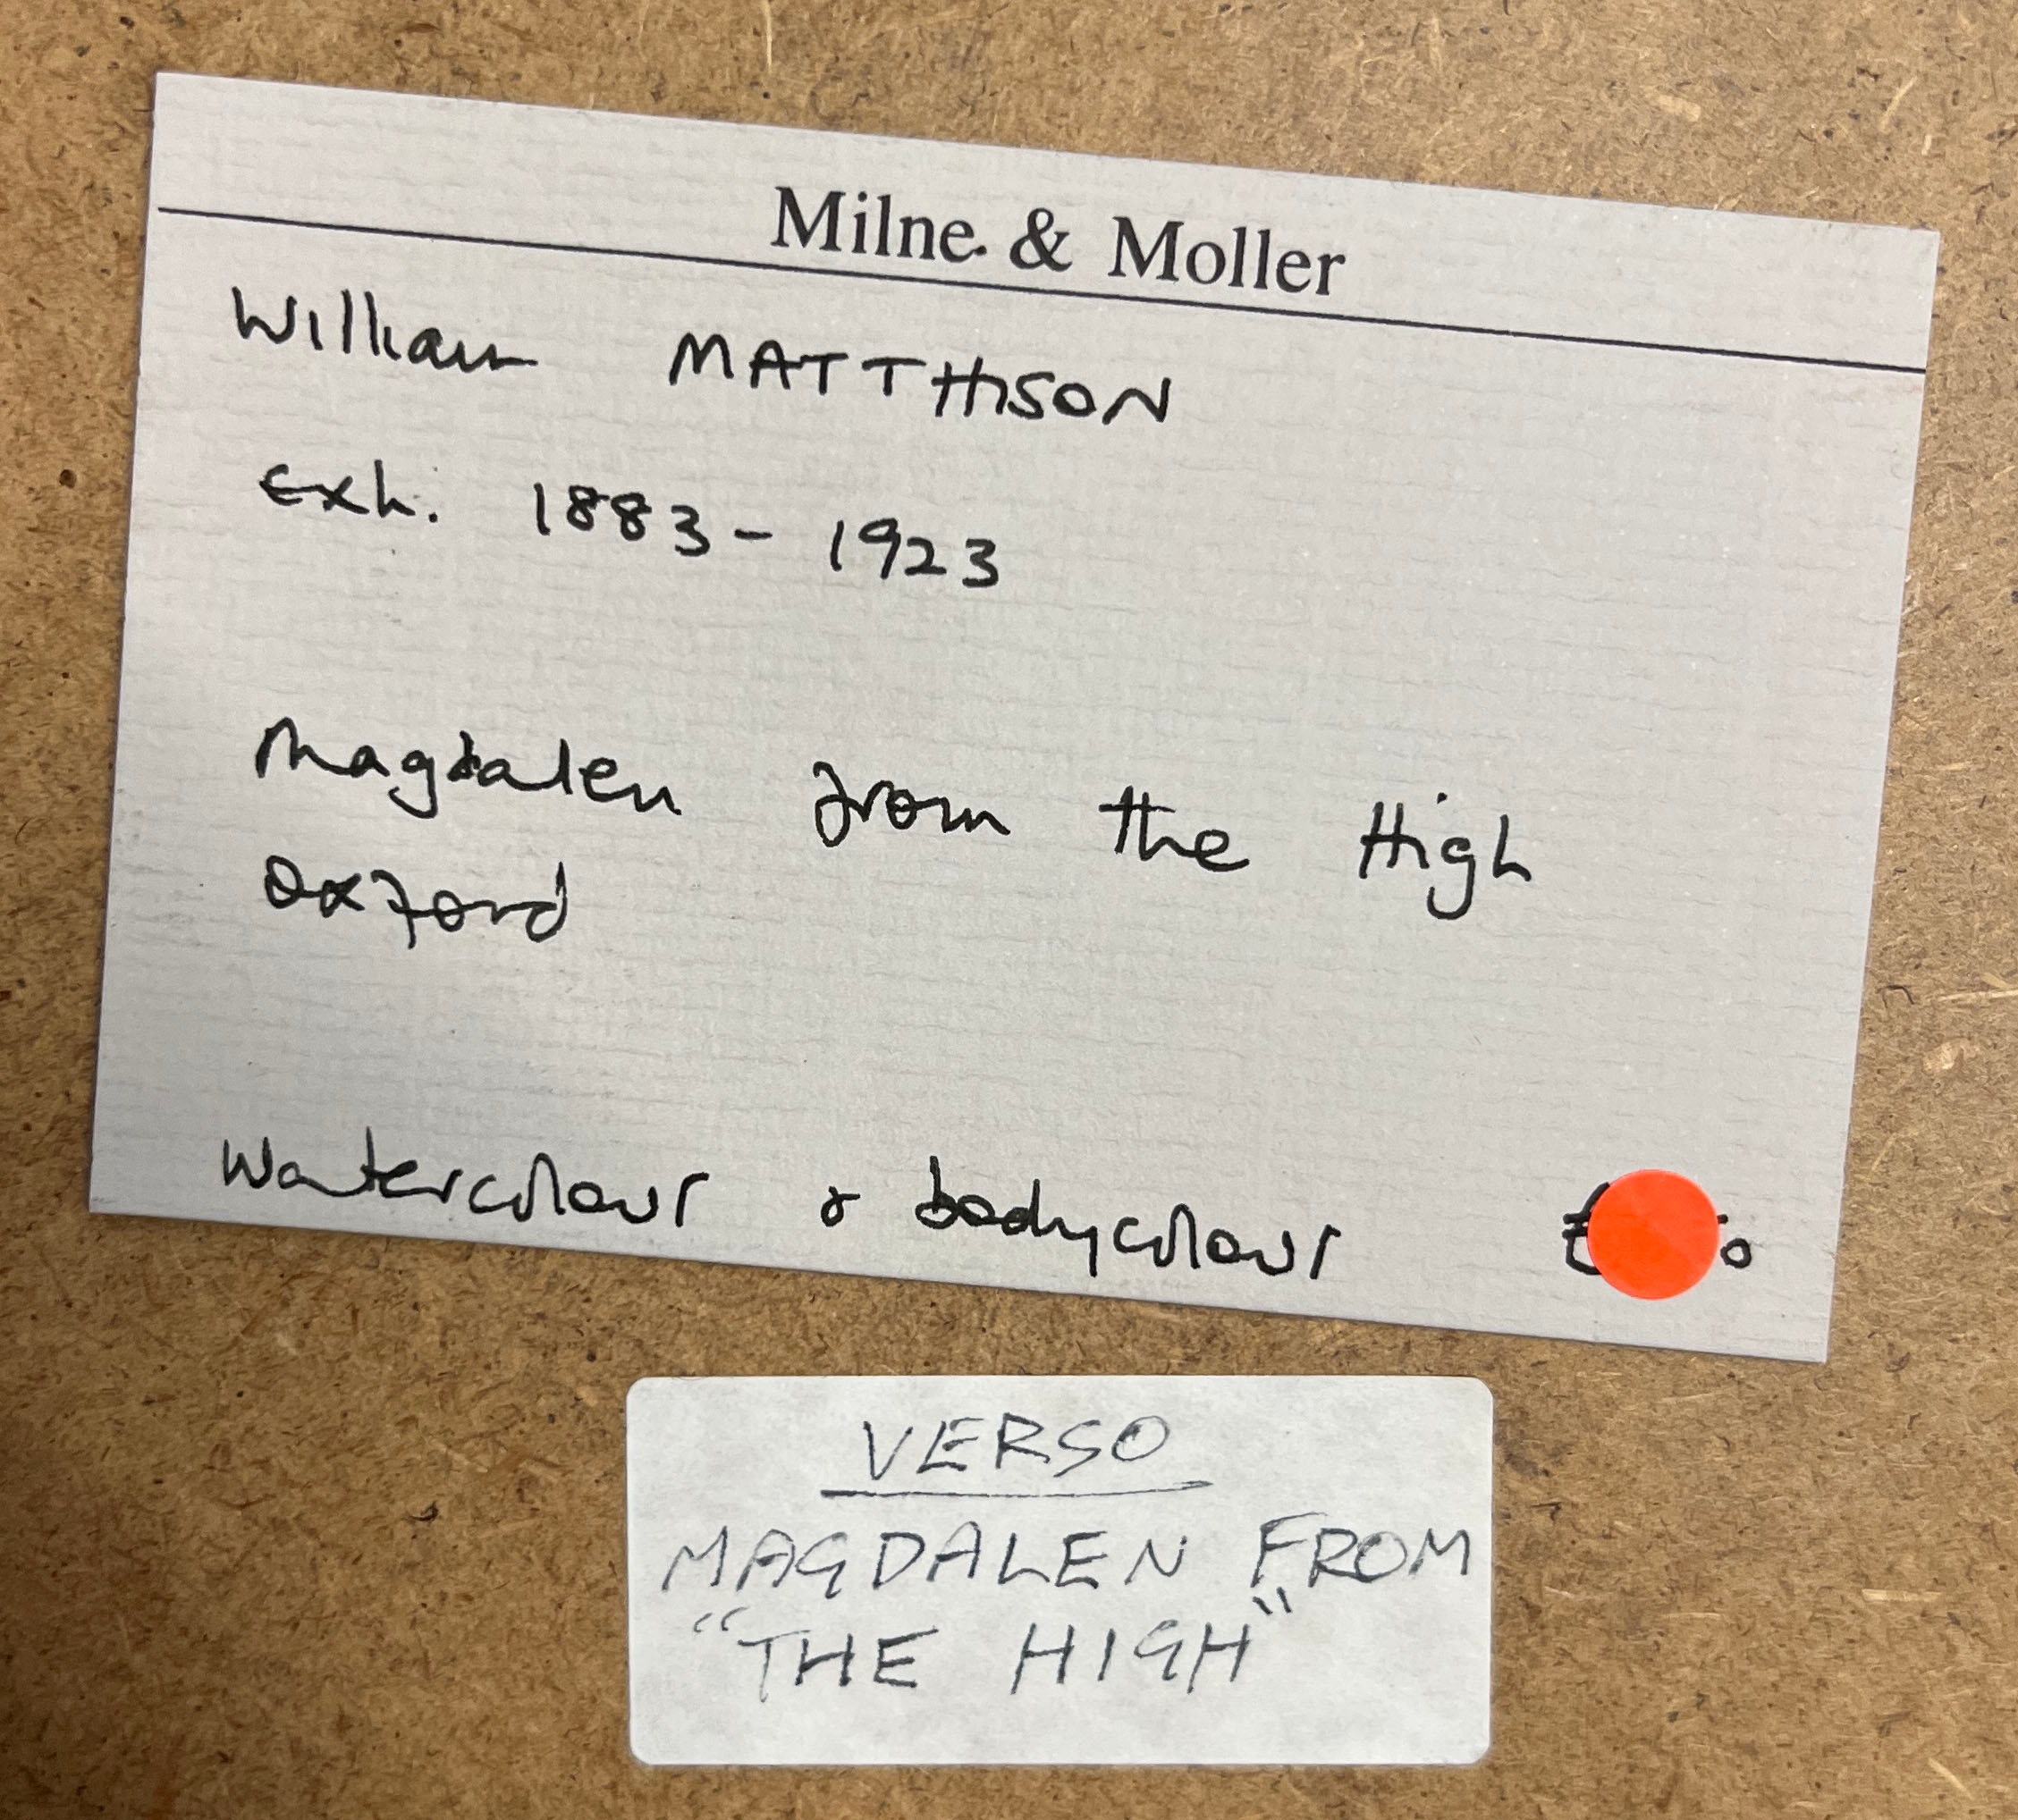 Milne & Moller
William MATTHISON
Exh. 1883 - 1923
Magdalen from the High
Oxford
Watercolour & bodycolour £
VERSO
MAGDALEN FROM
"THE HIGH"